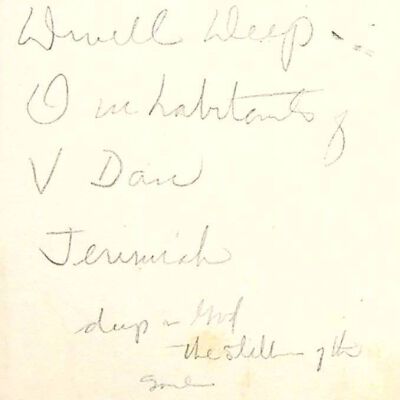 Dwell Deep -
O inhabitants of
V Dan
Jerimiah
deep in God
the stillness of the
soul